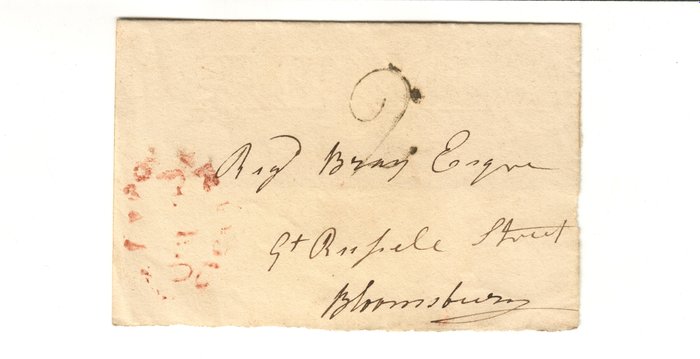 2
Regd Bray Esqre
Gt Russele Street
Bloomsbury